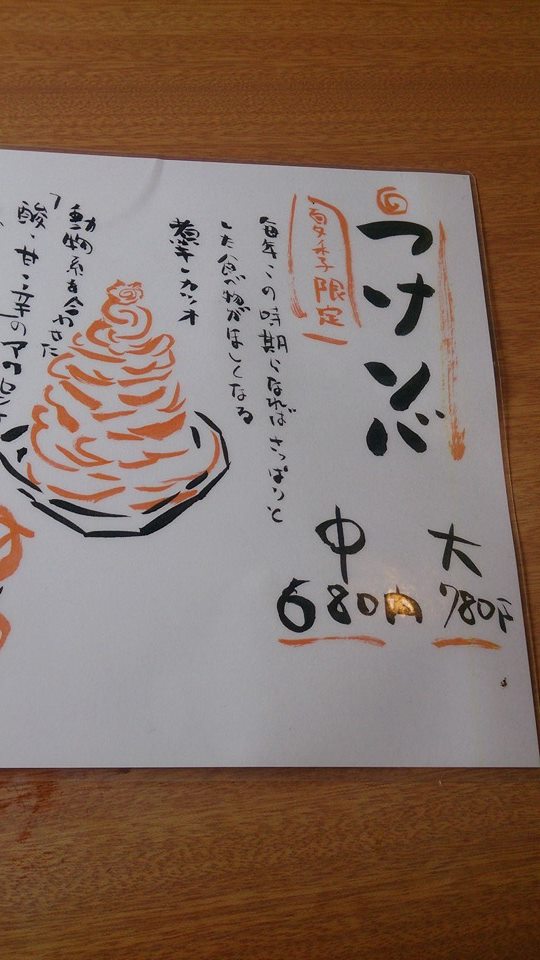 つけソバ
夏季限定
大
780円
中
680円
毎年この時期になればさっぱりと
した食べ物がほしくなる
煮干・カツオ
動物系を合わせた
「酸・甘・辛のアクセント